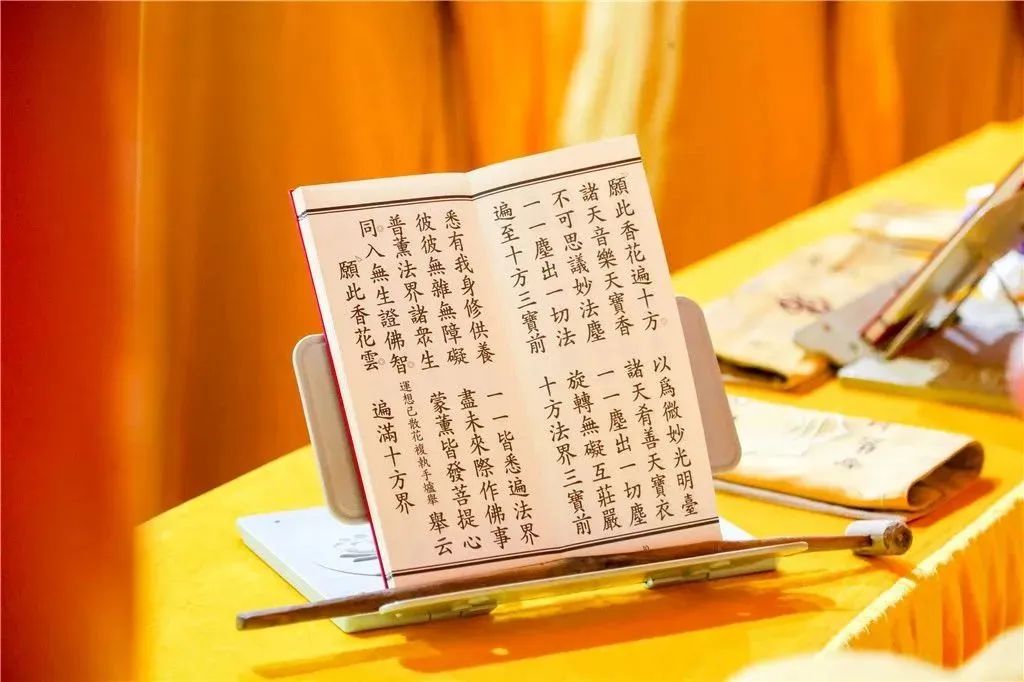 願此香花遍十方 以爲微妙光明臺
諸天音樂天寶香 諸天肴善天寶衣
不可思議妙法塵 一一塵出一切塵
一一塵出一切法 旋轉無礙互莊嚴
遍至十方三寶前 十方法界三寶前
悉有我身修供養 一一皆悉遍法界
彼彼無雜無障礙 盡未來際作佛事
普薰法界諸衆生 蒙薰皆發菩提心
同入無生證佛智 運想已散花複執手爐舉 舉云
願此香花雲 遍滿十方界